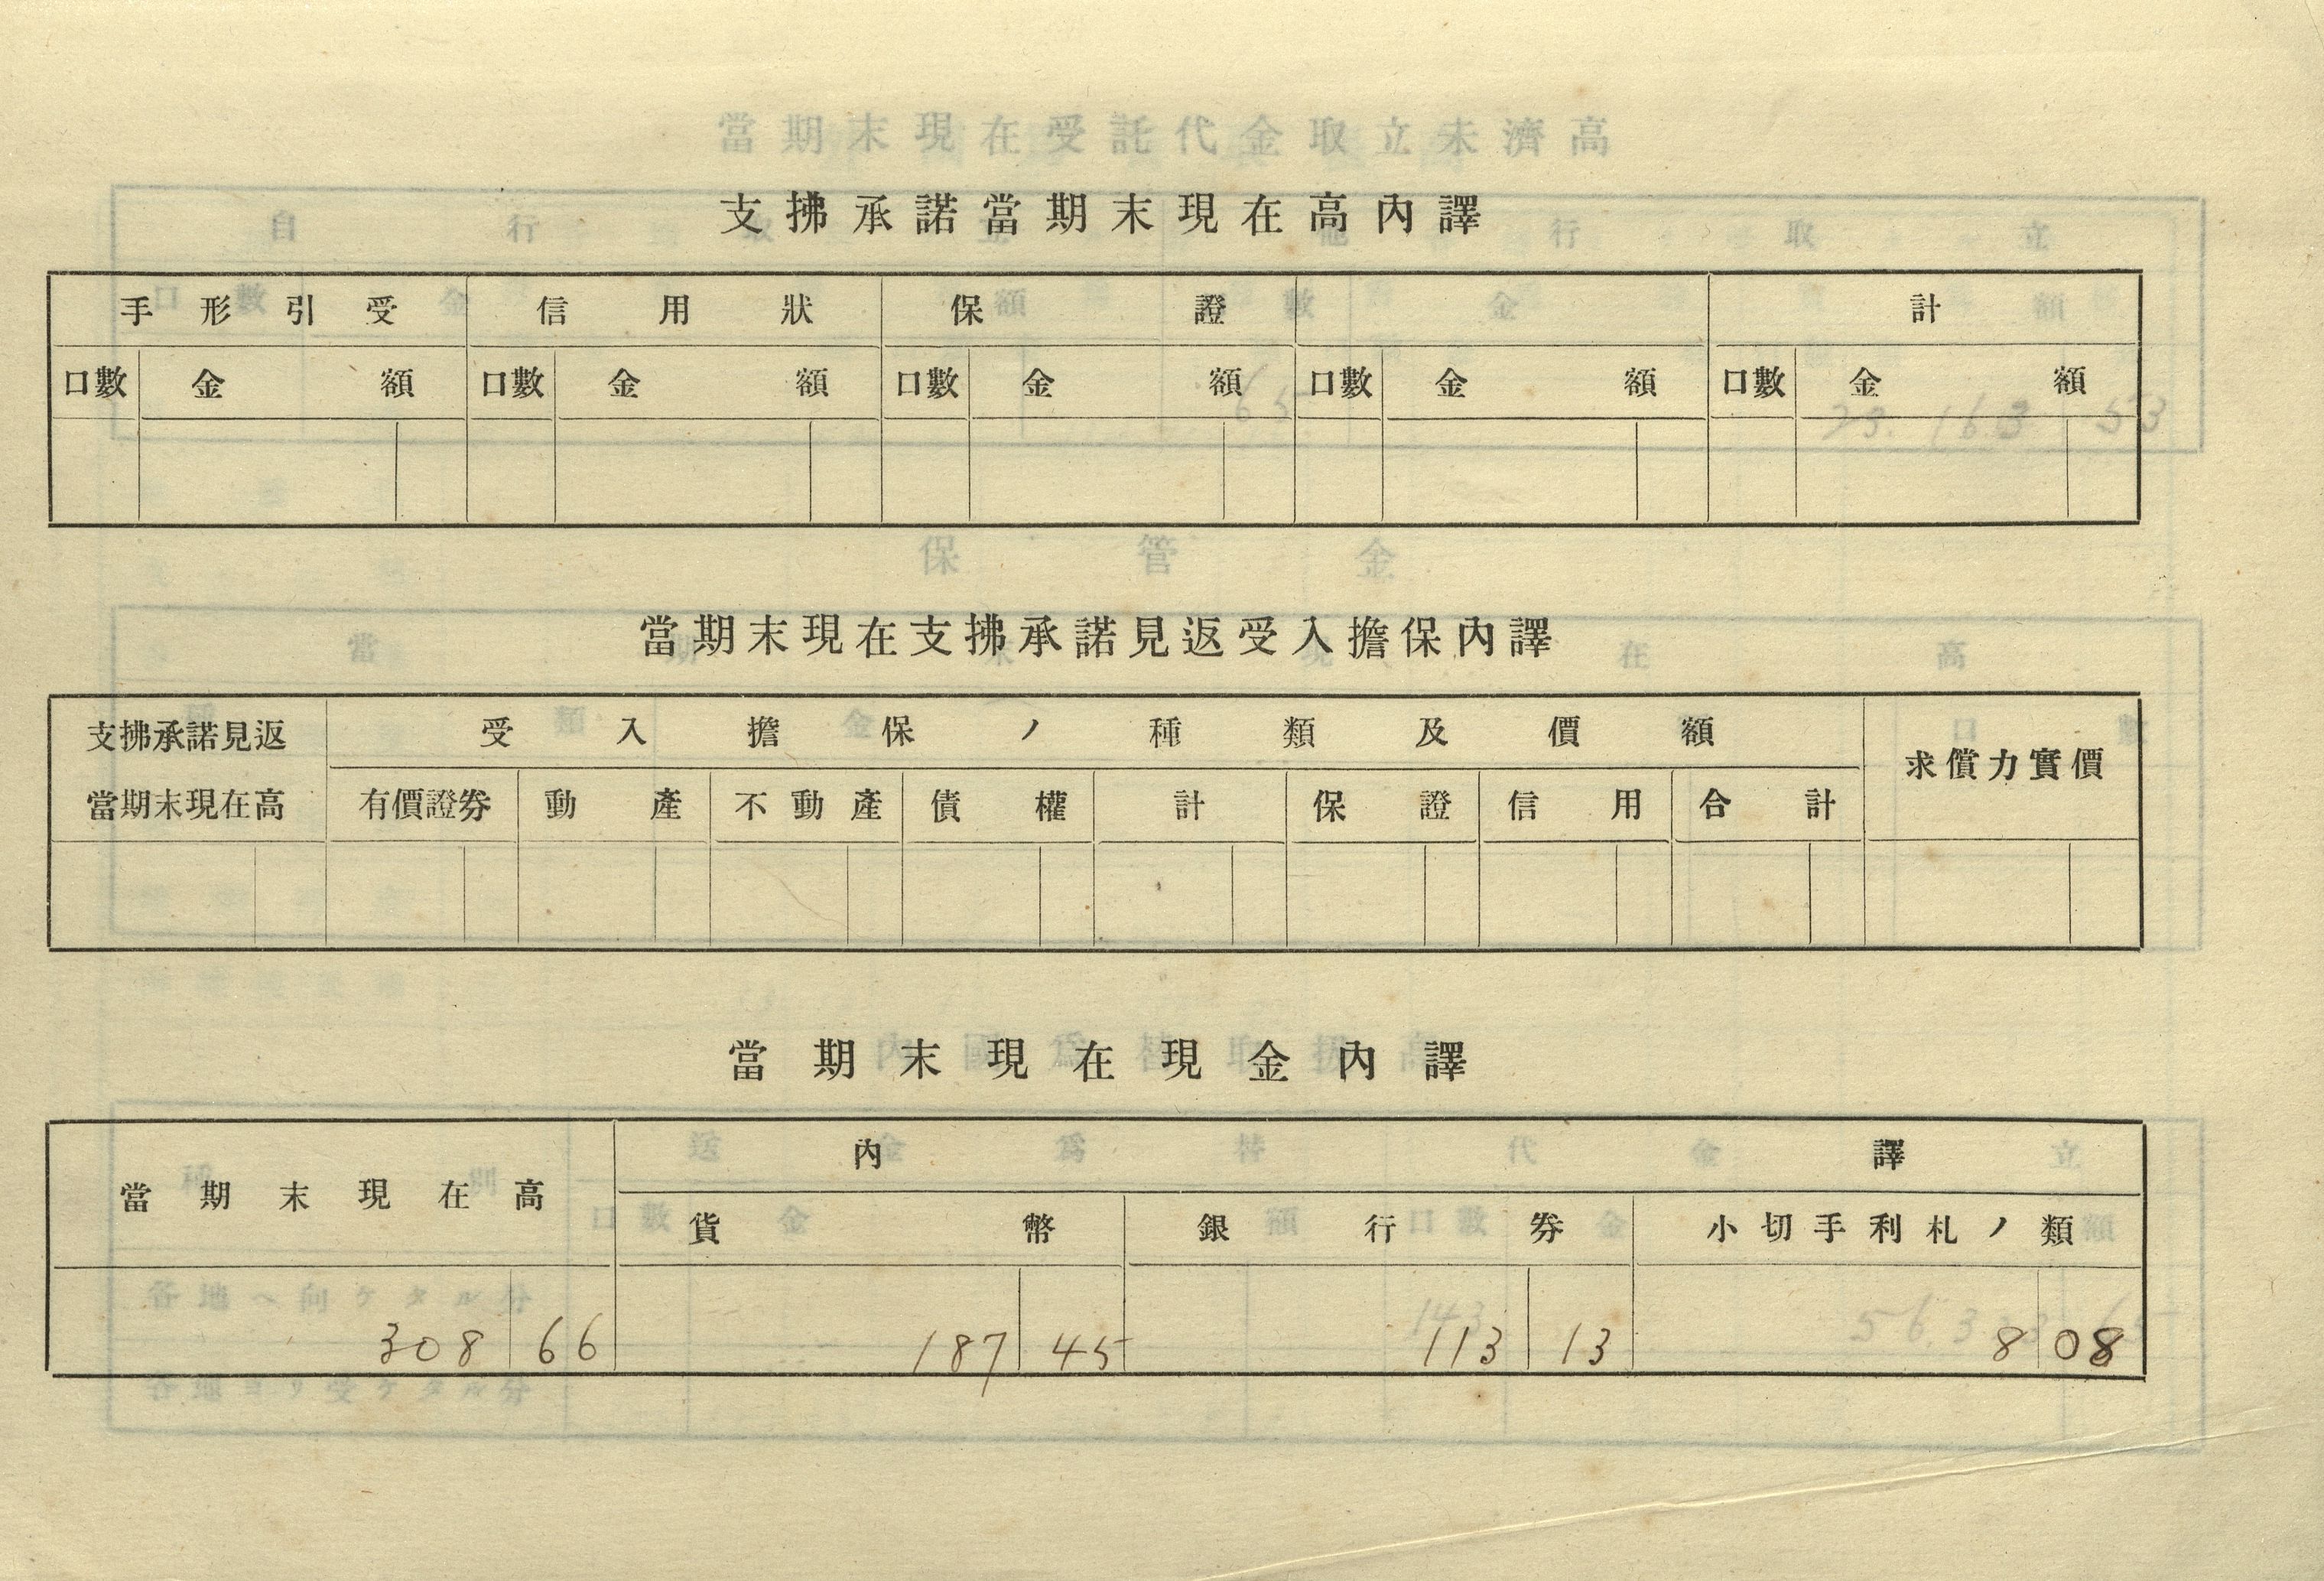 支拂承諾當期末現在高內譯
手形引受 信用狀 保證 計
口數 金額 口數 金額 口數 金額 口數 金額 口數 金額
當期末現在支拂承諾見返受入擔保內譯
支拂承諾見返 受入擔保ノ種類及價額 求償力實價
當期末現在高 有價證券 動產 不動產 債權 計 保證 信用 合計
當期末現在現金內譯
當期末現在高 內譯
貨幣 銀行券 小切手利札ノ類
308 66 187 45 113 13 8 08